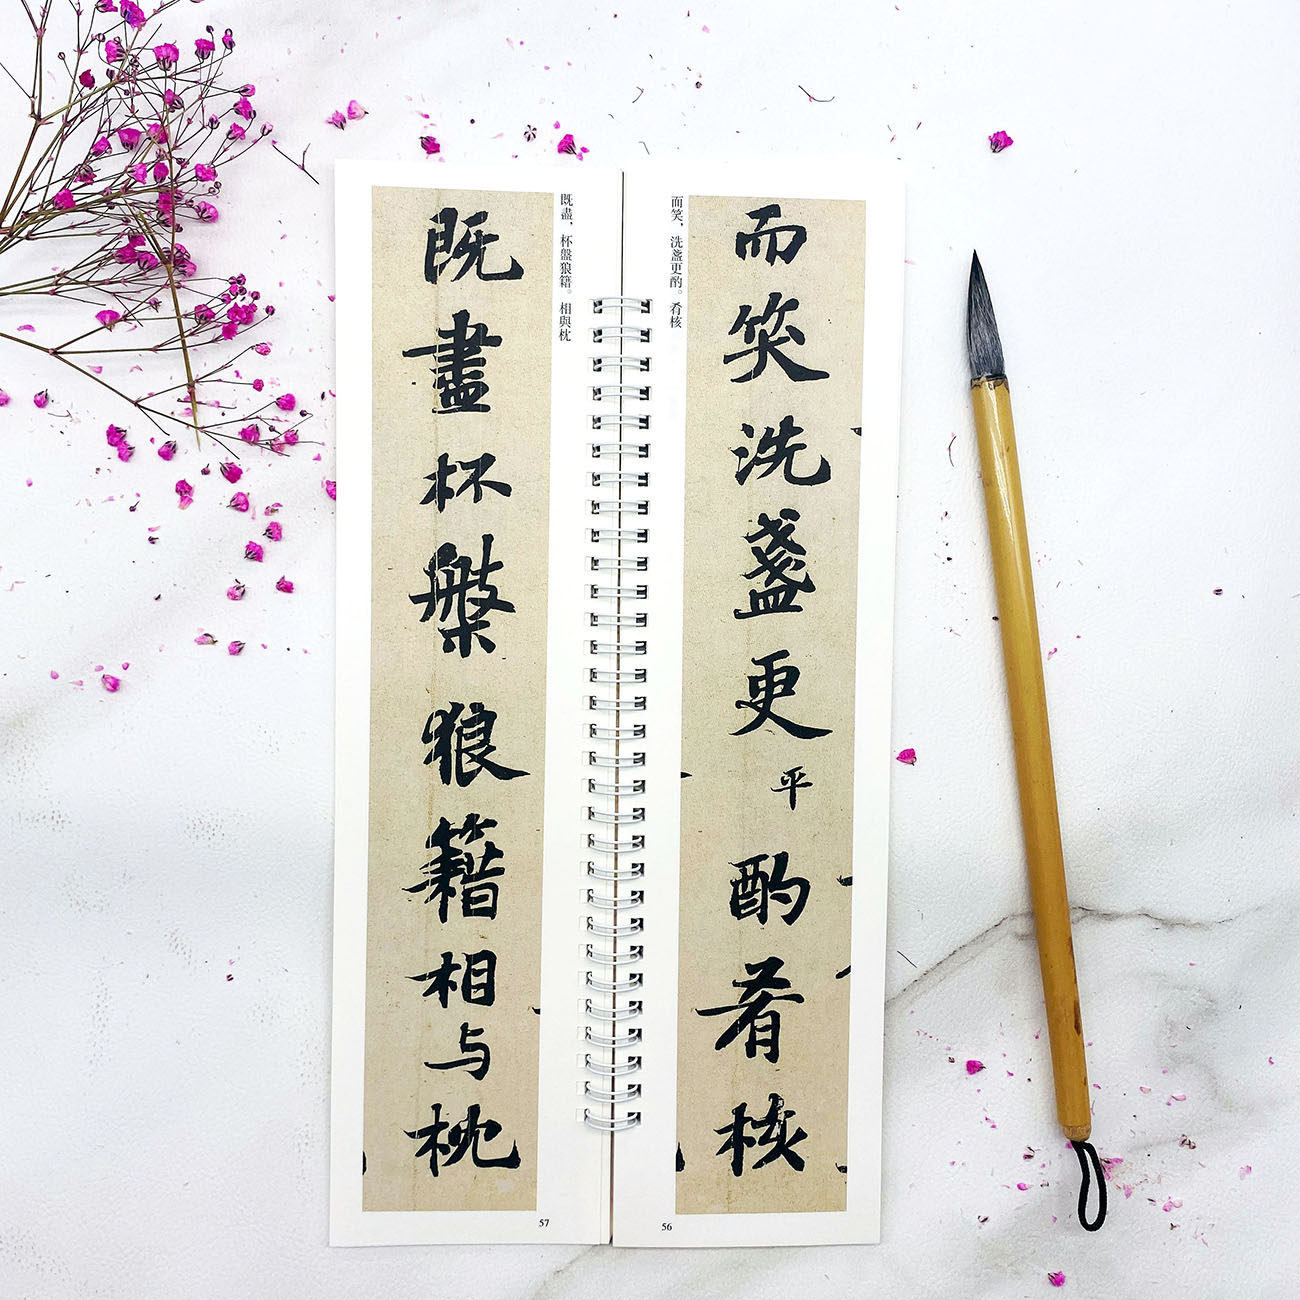 而笑洗盞更平酌肴核
而笑，洗盞更酌。肴核
56
既盡杯槃狼籍相与枕
既盡，杯盤狼籍。相與枕
57